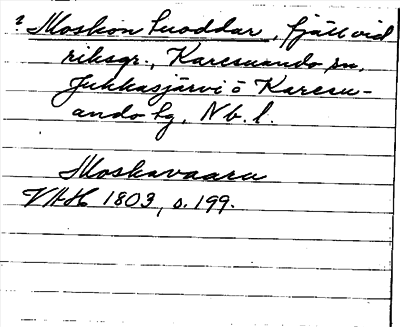 ? Moskon Luoddar, fjäll vid
riksgr., Karesuando sn,
Jukkasjärvi o Karesu-
ando lg, Nb. l.
Moskavaara
VAH 1803, s. 199.